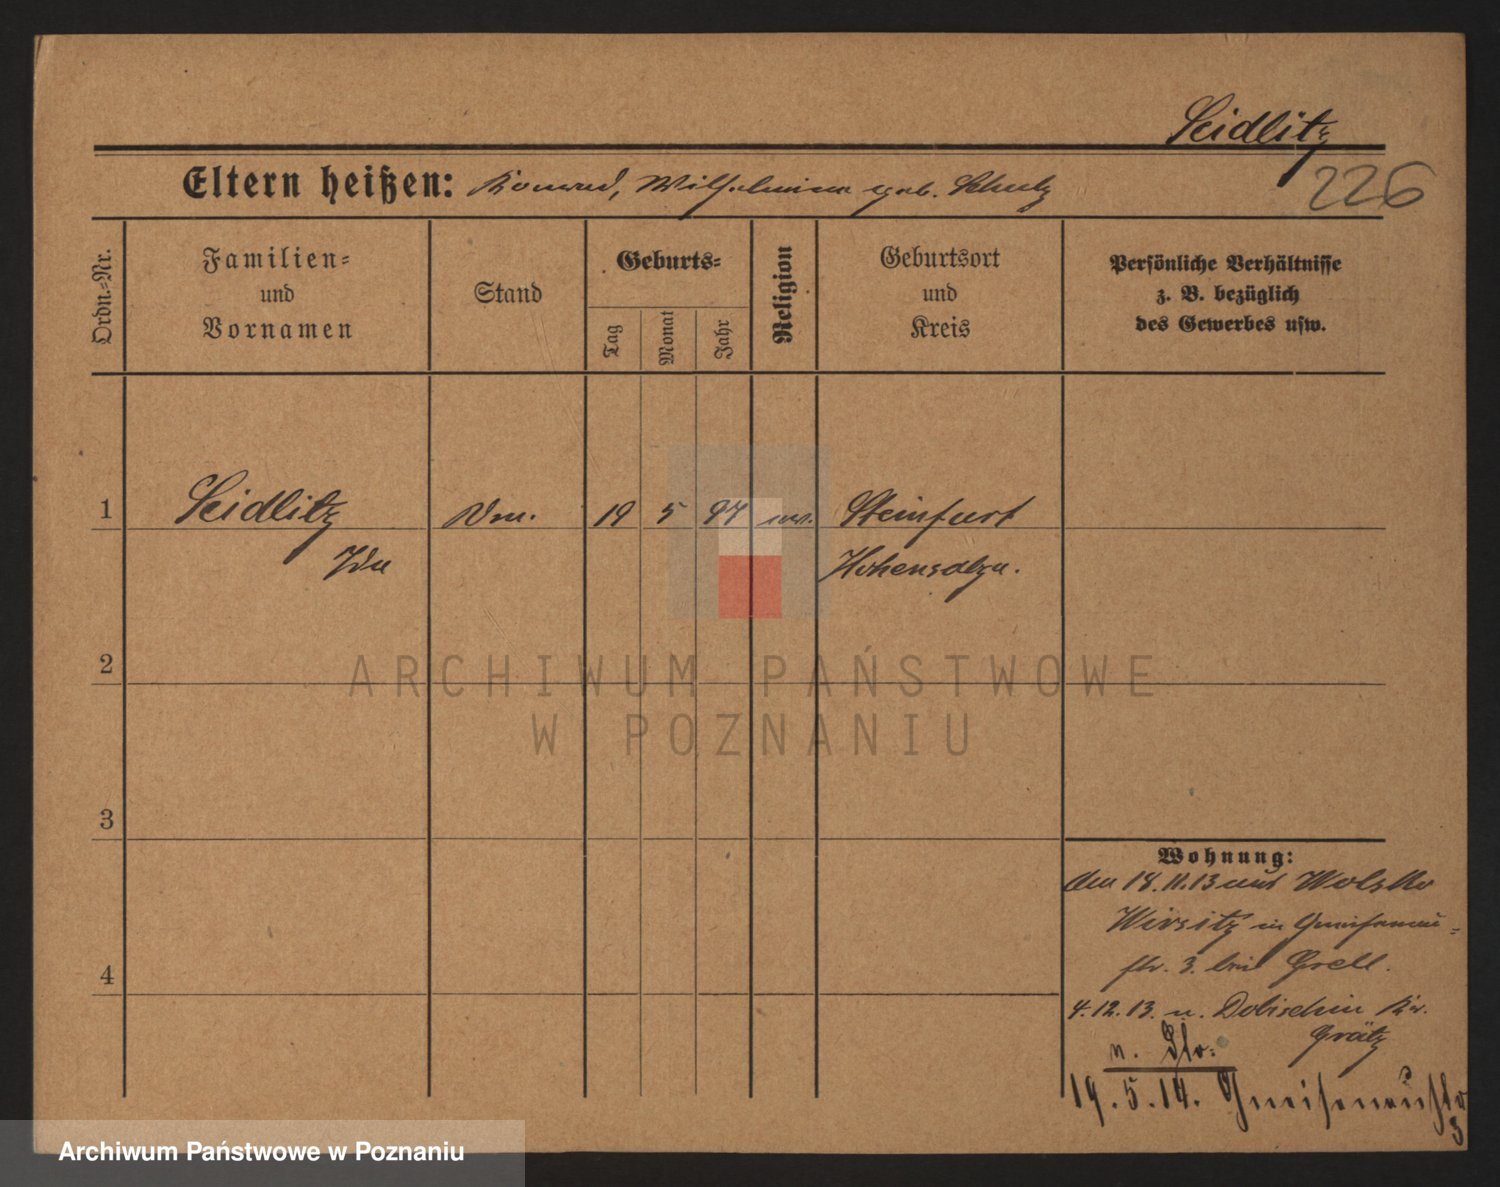 Seidlitz
226
Eltern heißen: Konrad, Wilhelmine geb. Schulz
Ordn.-Nr.
Familien-
und
Vornamen
Stand
Geburts-
Tag
Monat
Jahr
Religion
Geburtsort
und
Kreis
Persönliche Verhältnisse
z. B. bezüglich
des Gewerbes usw.
1 Seidlitz 19 5 94 ev. Steinfurt
Ida Hohensalza.
2
ARCHIWUM PAŃSTWOWE
W POZNANIU
3
4
Wohnung:
den 18.11.13 aus Wolsko
Wirsitz in Gneisenau-
str. 3. bei Grell.
4.12.13. n. Dobieschin Kr.
Grätz
19.5.14. Gneisenaustr
3
Archiwum Państwowe w Poznaniu